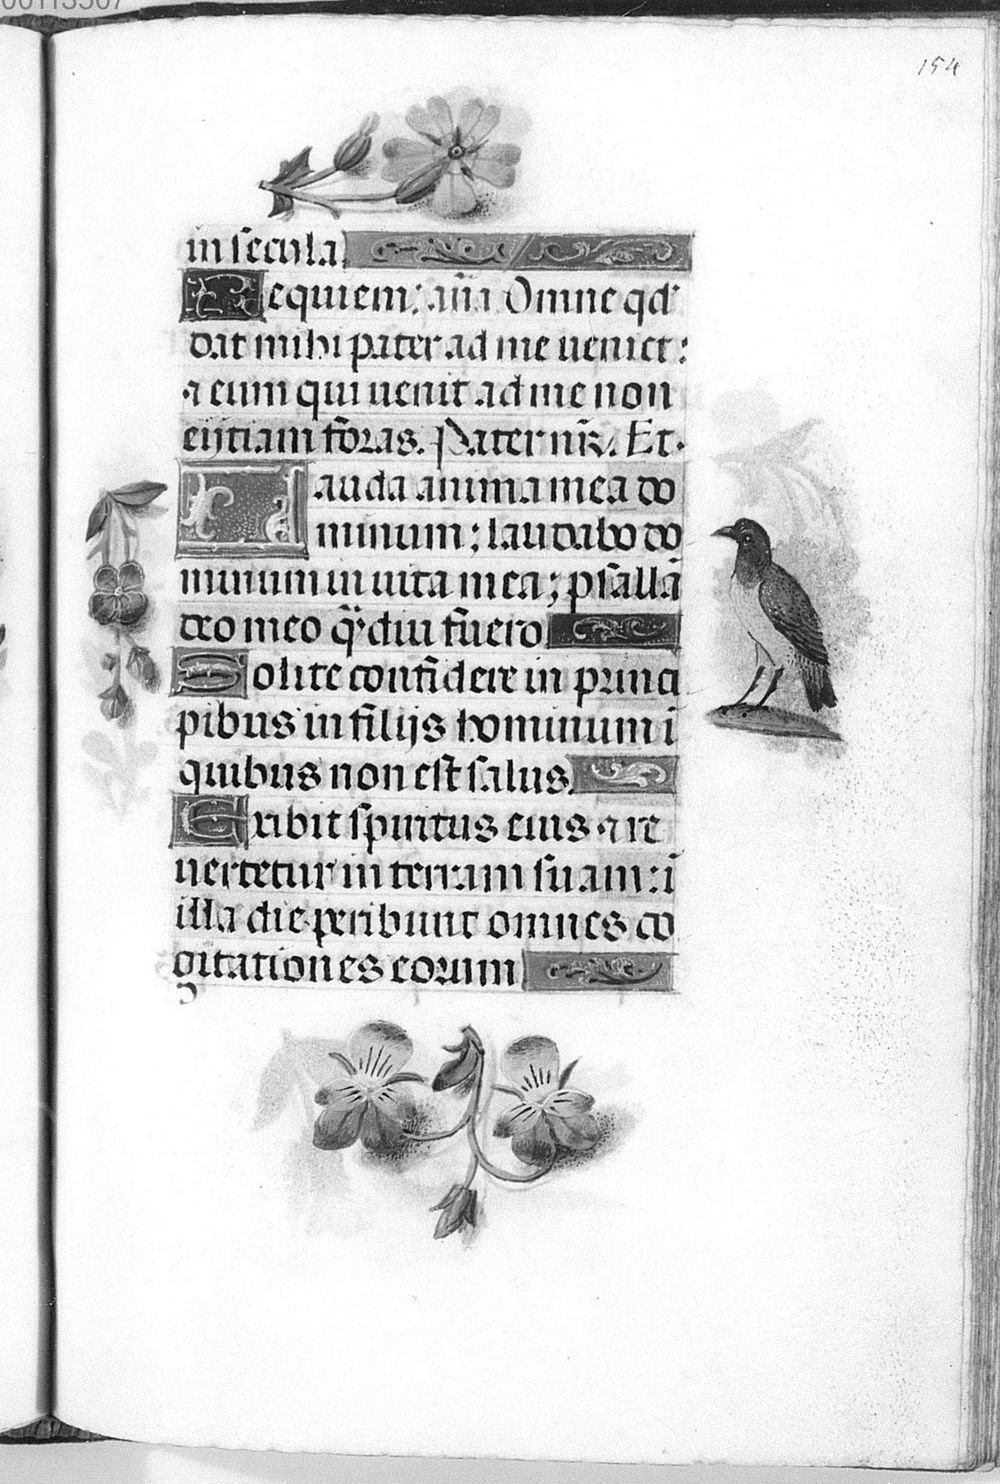 00113507
154
in secula.
Requiem. añā Omne qd
dat michi pater ad me veniet:
⁊ eum qui uenit ad me non
eijciam foras. Pater nr̄. Et.
Lauda anima mea do
minum; laudabo do
minum in uita mea; psallā
deo meo q̄diu fuero
Nolite confidere in princi
pibus in filijs hominum ī
quibus non est salus.
Exibit spiritus eius ⁊ re
uertetur in terram suam: ī
illa die peribunt omnes co
gitationes eorum